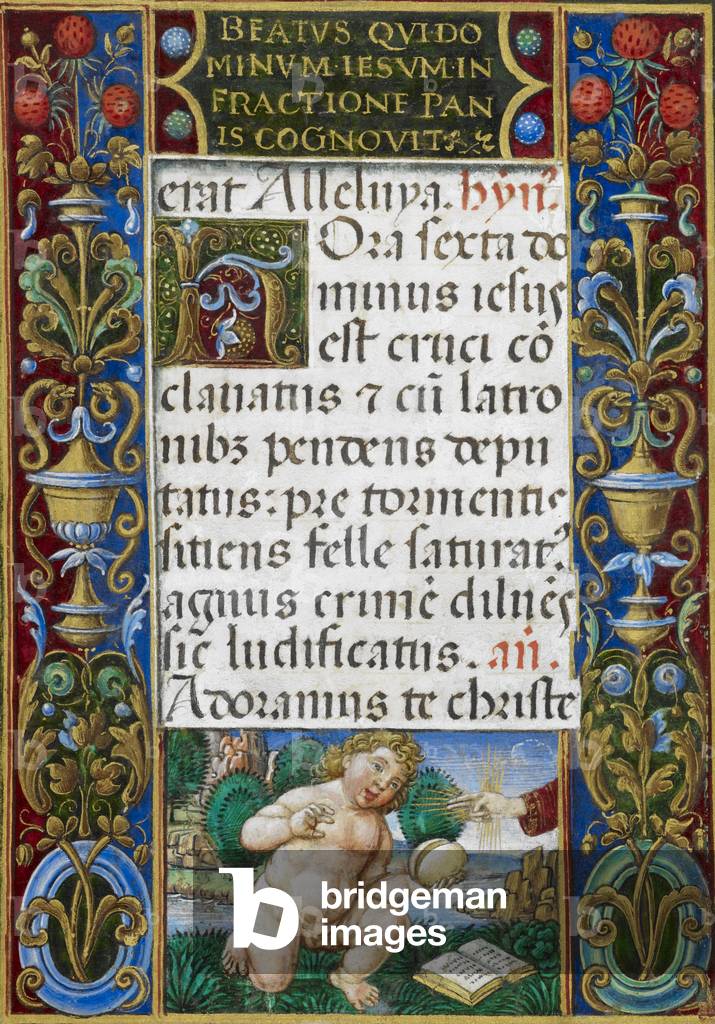 BEATVS QVI DO
MINVM·IESVM·IN
FRACTIONE PAN
IS COGNOVIT
erat Alleluya. hyn̄.
Hora sexta do
minus iesus
est cruci cō
clauatus ⁊ cū latro
nibꝫ pendens depu
tatus: pre tormentis
sitiens felle saturatꝰ.
agnus crimē diluēs
sic̄ ludificatus. an̄.
Adoramus te christe
bridgeman
images